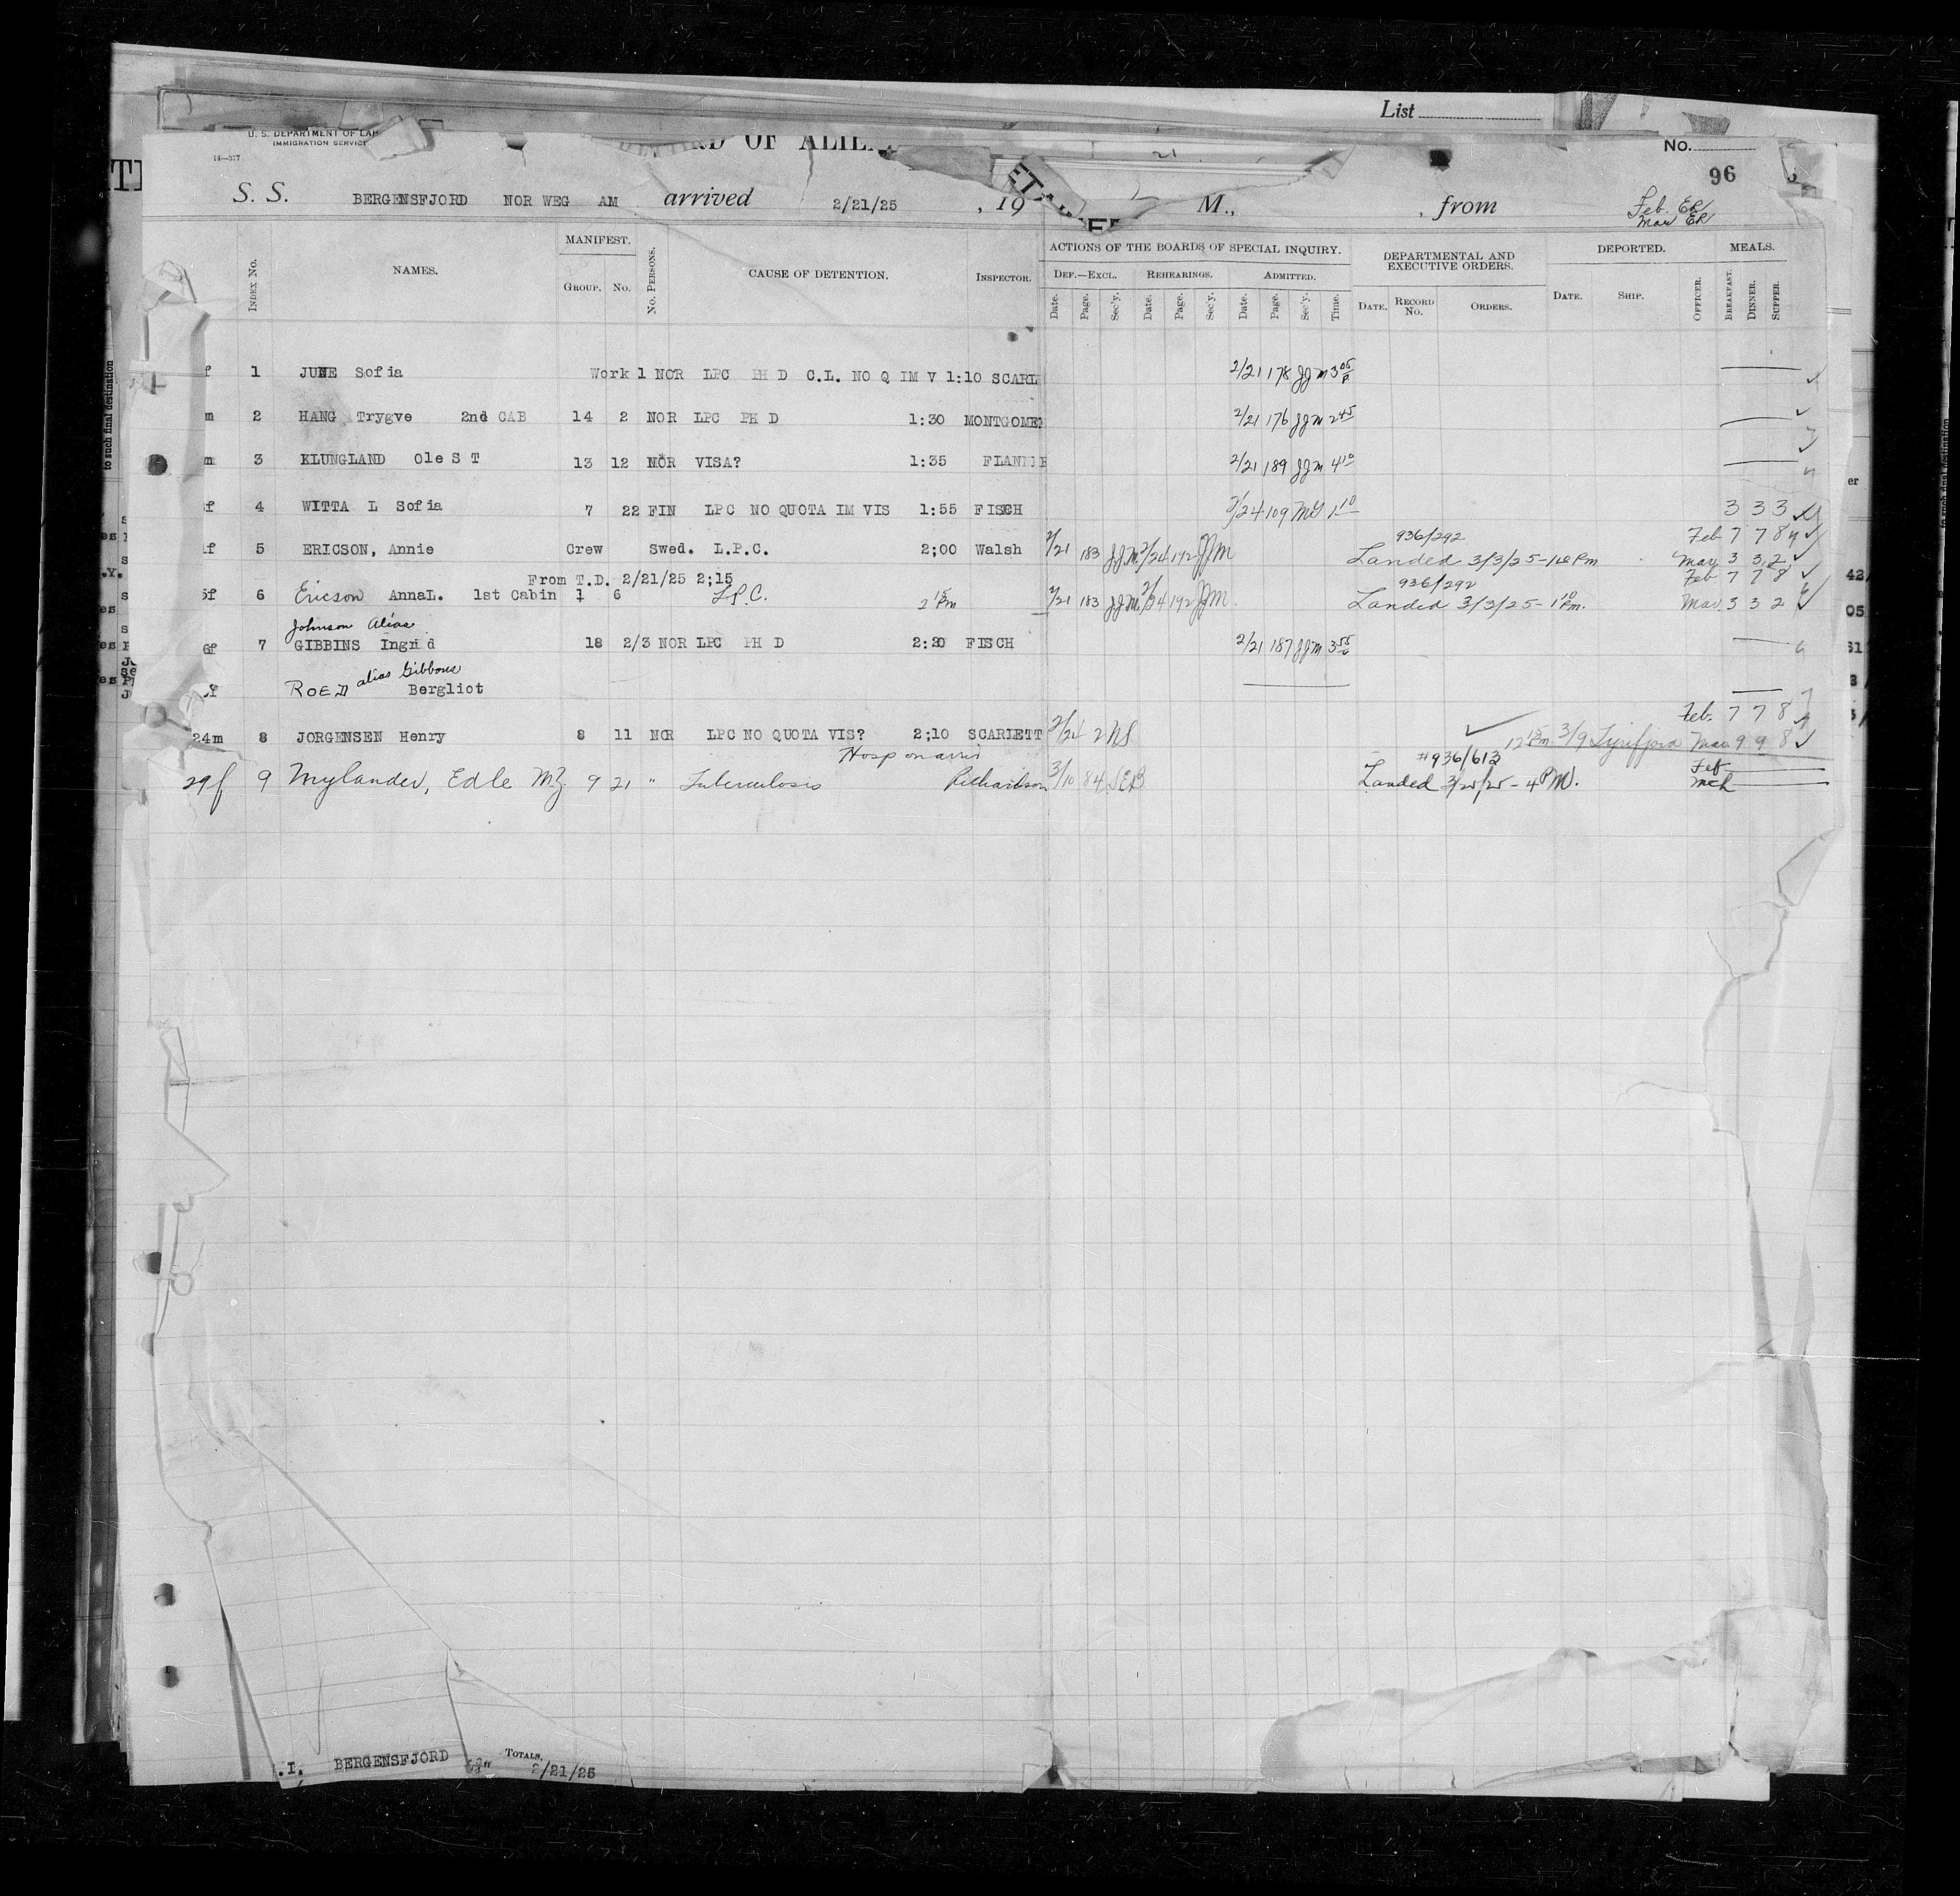 List
U. S. DEPARTMENT OF LAB
IMMIGRATION SERVICE
14—377
RD OF ALIE
No.
96
S. S. BERGENSFJORD NOR WEG AM arrived 2/21/25 , 19 M., , from
Feb. ER
Mar ER
INDEX No. NAMES. MANIFEST. GROUP. No. No. PERSONS. CAUSE OF DETENTION. INSPECTOR.
ACTIONS OF THE BOARDS OF SPECIAL INQUIRY. DEF.—EXCL. REHEARINGS. ADMITTED.
Date. Page. Sec'y. Date. Page. Sec'y. Date. Page. Sec'y. Time.
DEPARTMENTAL AND EXECUTIVE ORDERS. DATE. RECORD No. ORDERS.
DEPORTED. DATE. SHIP. OFFICER.
MEALS. BREAKFAST. DINNER. SUPPER.
f 1 JUNE Sofia Work 1 NOR LPC PH D C.L. NO Q IM V 1:10 SCARL 2/21 178 JJM 3 05 P
m 2 HANG Trygve 2nd CAB 14 2 NOR LPC PH D 1:30 MONTGOME 2/21 176 JJM 2 45
m 3 KLUNGLAND Ole S T 13 12 NOR VISA? 1:35 FLANN 2/21 189 JJM 4 10
f 4 WITTA L Sofia 7 22 FIN LPC NO QUOTA IM VIS 1:55 FISCH 2/24 109 1 10 3 3 3
936/292 Feb 7 7 8
f 5 ERICSON, Annie Crew Swed. L.P.C. 2;00 Walsh 2/21 183 JJM 2/24 192 JJM Landed 3/3/25-1 10 Pm Mar 3 3 2
From T.D. 2/21/25 2;15 936/292 Feb 7 7 8
5f 6 Ericson AnnaL. 1st Cabin 1 6 L.P.C. 2 15 Pm 2/21 183 JJM 2/24 192 JJM Landed 3/3/25-1 10 Pm. Mar 3 3 2
Johnson Alias
6f 7 GIBBINS Ingrid 18 2/3 NOR LPC PH D 2:20 FISCH 2/21 187 JJM 3 55
ROED alias Gibbons Bergliot
Feb. 7 7 8
24m 8 JORGENSEN Henry 8 11 NOR LPC NO QUOTA VIS? 2;10 SCARLETT 2/24 2 NS 12 15 Pm. 3/9 Tyrifjord Mar 9 9 8
Hosp on arriv #936/613 Feb
29f 9 Mylander, Edle M. 9 21 " Tuberculosis Richardson 3/10 84 SEB Landed 3/25/25 - 4 PM. Mch
.I. BERGENSFJORD TOTALS, 2/21/25